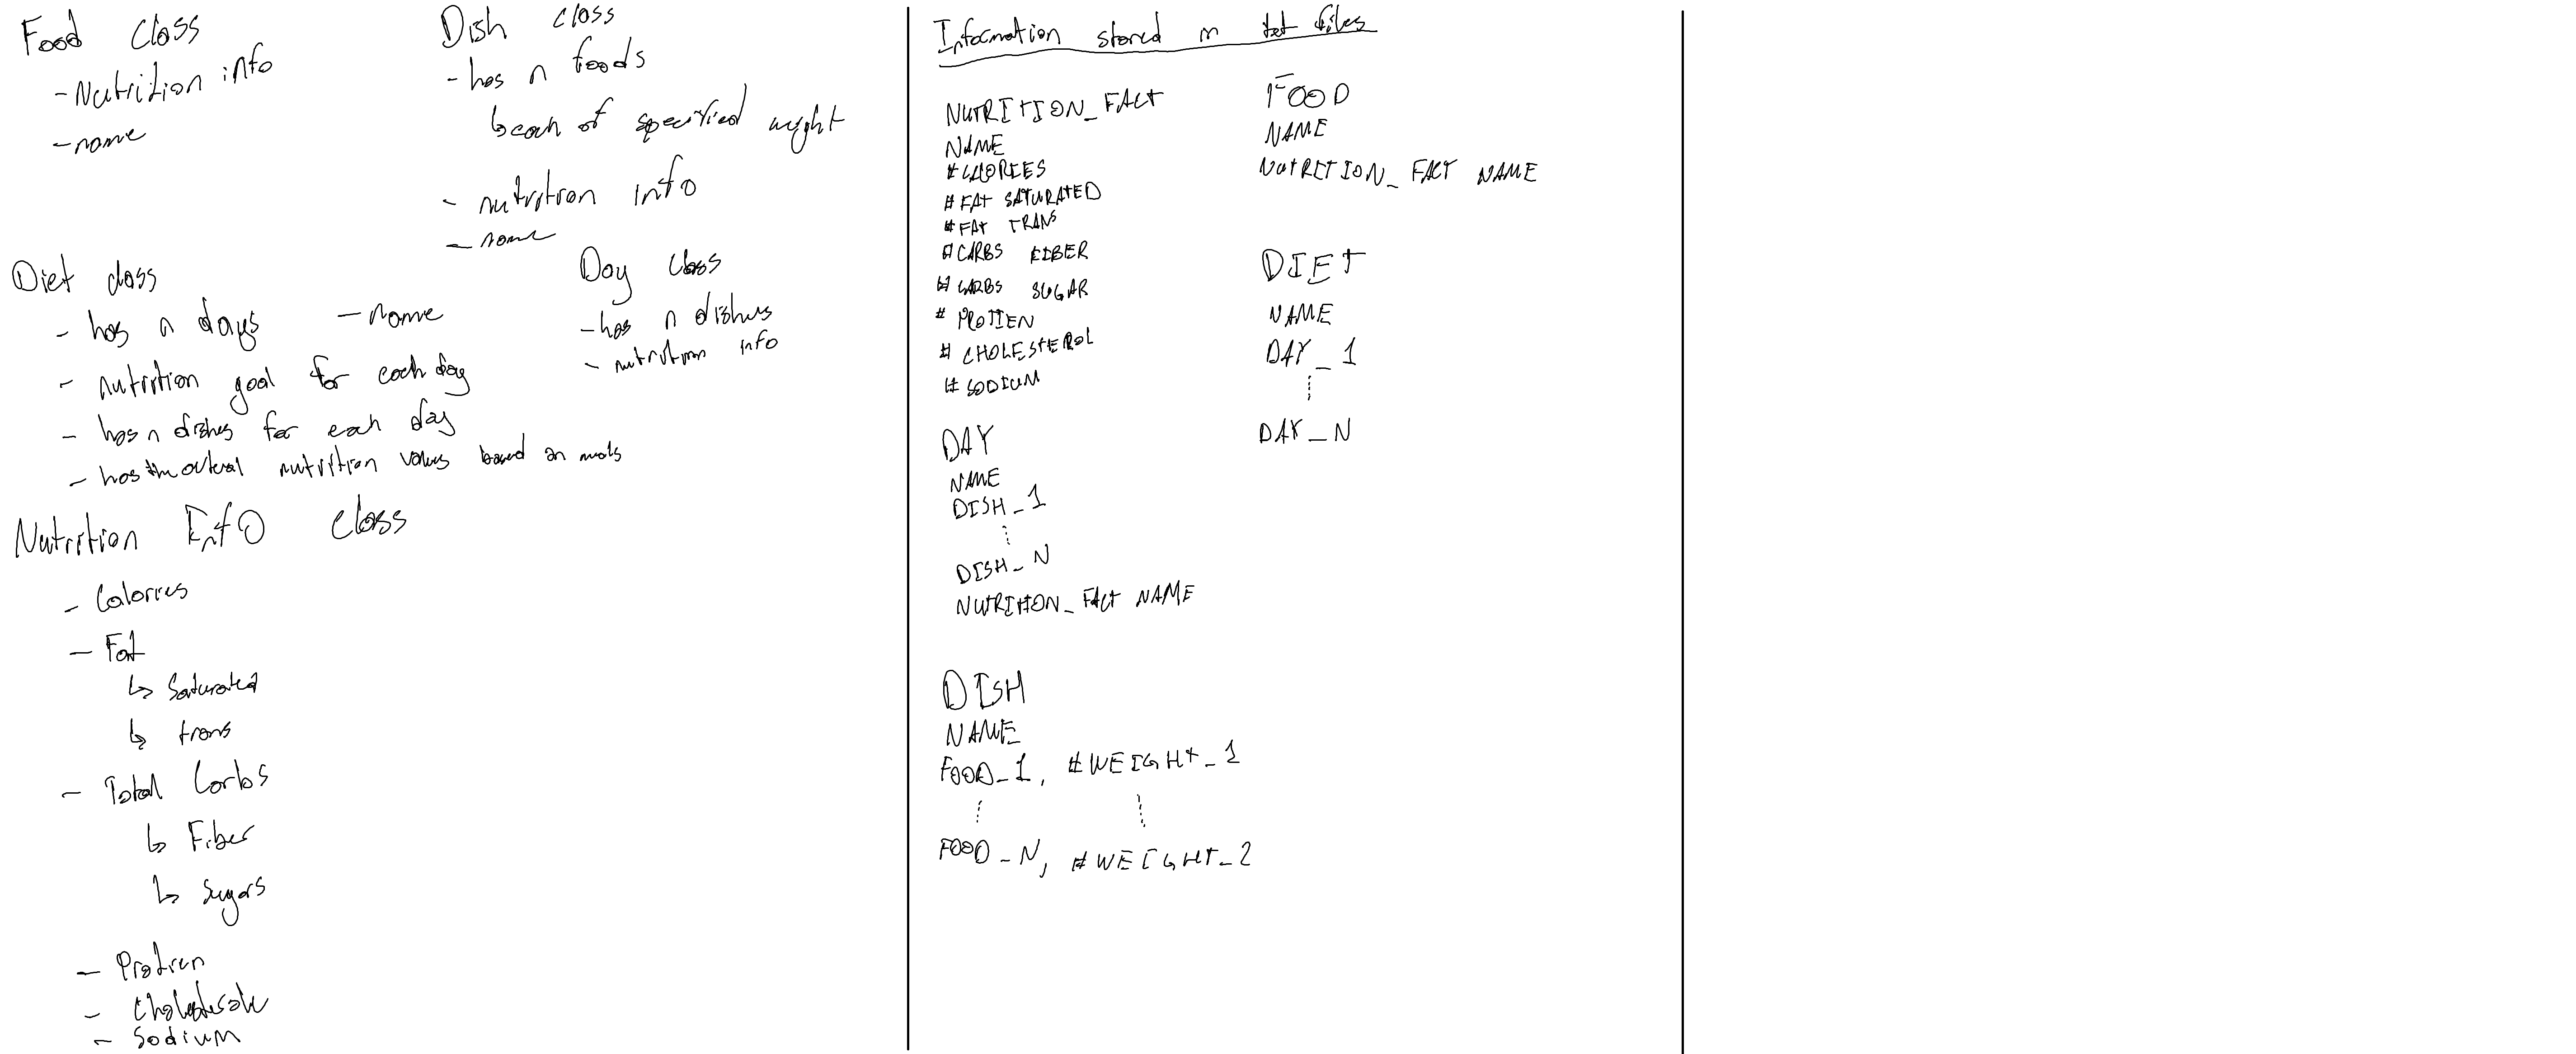 Food Class
- Nutrition info
- name
Dish class
- has n foods
↳ each of specified weight
- nutrition info
- name
Diet class
- has n days
- name
- nutrition goal for each day
- has n dishes for each day
- has the actual nutrition values based on meals
Day class
- has n dishes
- nutrition info
Nutrition Info class
- Calories
- Fat
↳ Saturated
↳ trans
- Total Carbs
↳ Fiber
↳ Sugars
- Protien
-
- Sodium
Information stored in txt files
NUTRITION_FACT
NAME
#CALORIES
#FAT SATURATED
#FAT TRANS
#CARBS FIBER
#CARBS SUGAR
# PROTIEN
# CHOLESTEROL
# SODIUM
FOOD
NAME
NUTRITION_FACT NAME
DIET
NAME
DAY_1
DAY_N
DAY
NAME
DISH_1
DISH_N
NUTRITION_FACT NAME
DISH
NAME
FOOD_1, #WEIGHT_1
FOOD_N, #WEIGHT_2